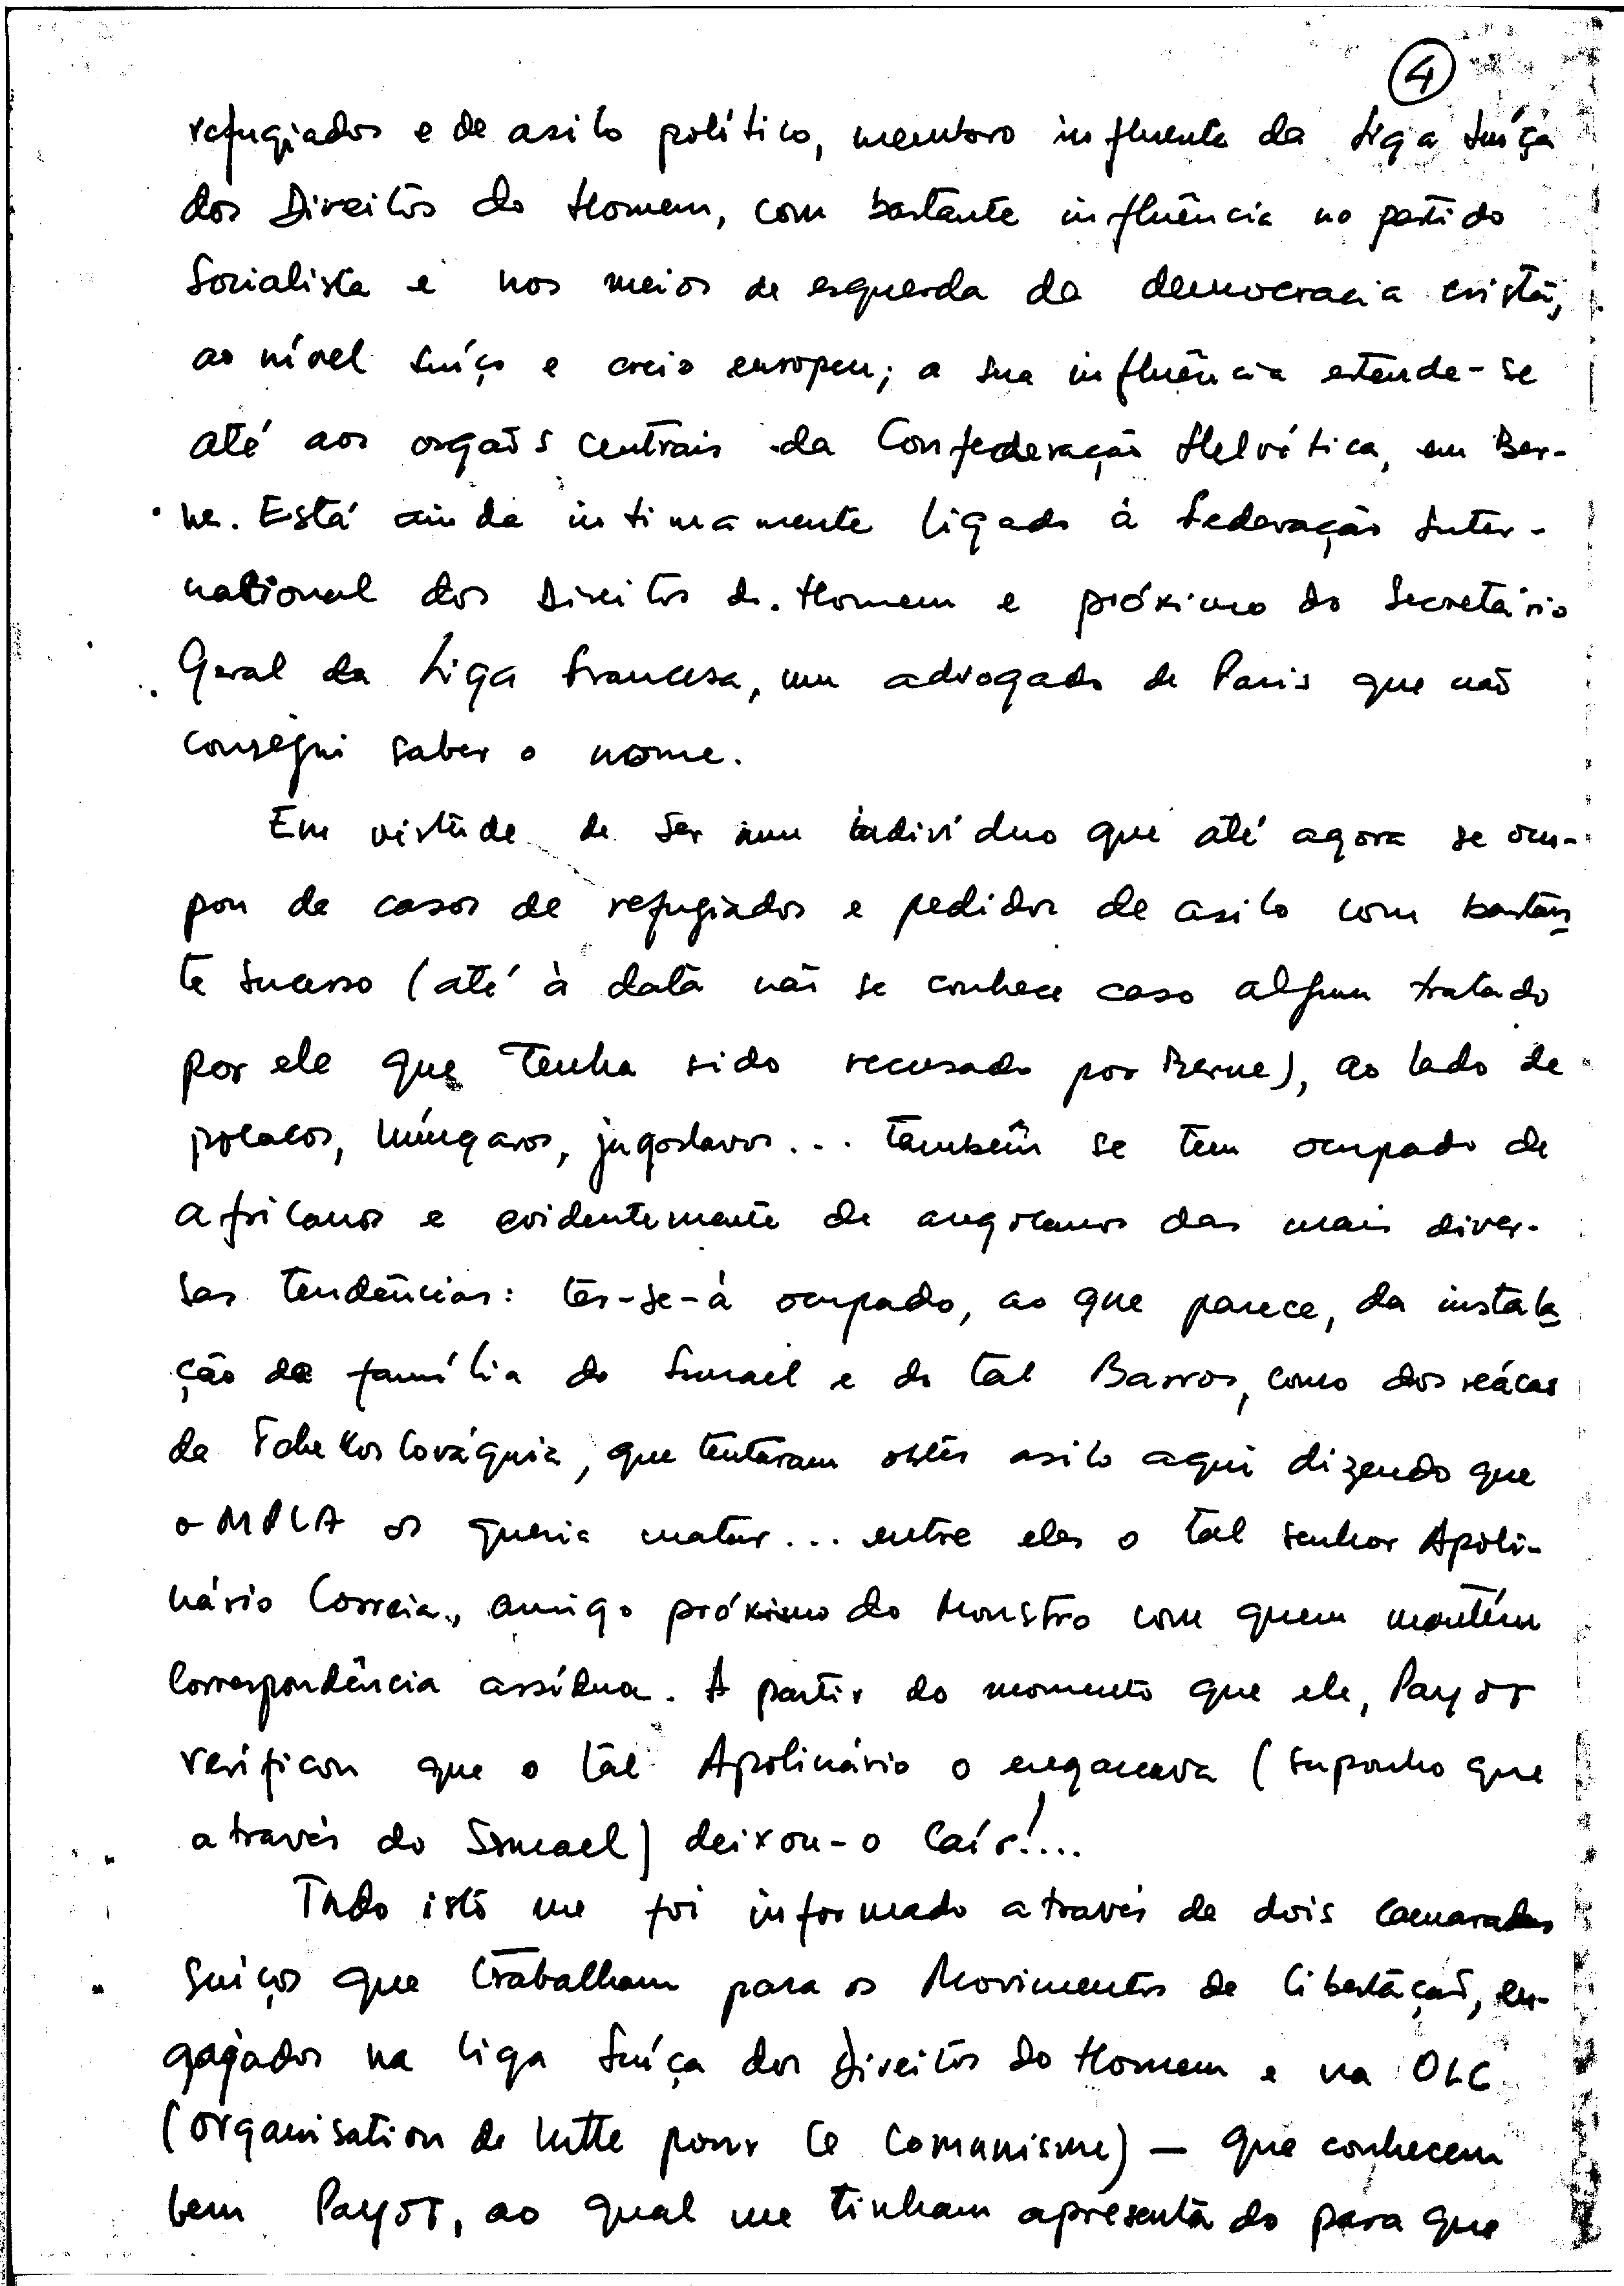 4
refugiados e de asilo político, membro influente da Liga Suíça
dos Direitos do Homem, com bastante influência no partido
Socialista e nos meios de esquerda da democracia cristã,
ao nível suíço e creio europeu; a sua influência estende-se
até aos orgãos centrais da Confederação Helvética, em Ber-
ne. Está ainda intimamente ligado à Federação Inter-
national dos Direitos do Homem e próximo do Secretário
Geral da Liga Francesa, um advogado de Paris que não
consegui saber o nome.
Em virtude de ser um indivíduo que até agora se ocu-
pou de casos de refugiados e pedidos de asilo com bastan
te sucesso (até à data não se conhece caso algum tratado
por ele que tenha sido recusado por Berne), ao lado de
polacos, húngaros, jugoslavos... também se tem ocupado de
africanos e evidentemente de angolanos das mais diver-
sas tendências: ter-se-à ocupado, ao que parece, da instala
ção da família do Ismael e do tal Barros, como dos reácas
da Tchekoslováquia, que tentaram obter asilo aqui dizendo que
o MPLA os queria matar... entre eles o tal senhor Apoli-
nário Correia, amigo próximo do Monstro com quem mantém
correspondência assídua. A partir do momento que ele, Payot
verificou que o tal Apolinário o enganava (suponho que
através do Ismael) deixou-o caír!...
Tudo isto me foi informado através de dois camaradas
suiços que trabalham para os Movimentos de Libertação, en-
gajados na Liga Suíça dos Direitos do Homem e na OLC
(Organisation de lutte pour le Comunisme) — que conhecem
bem Payot, ao qual me tinham apresentado para que